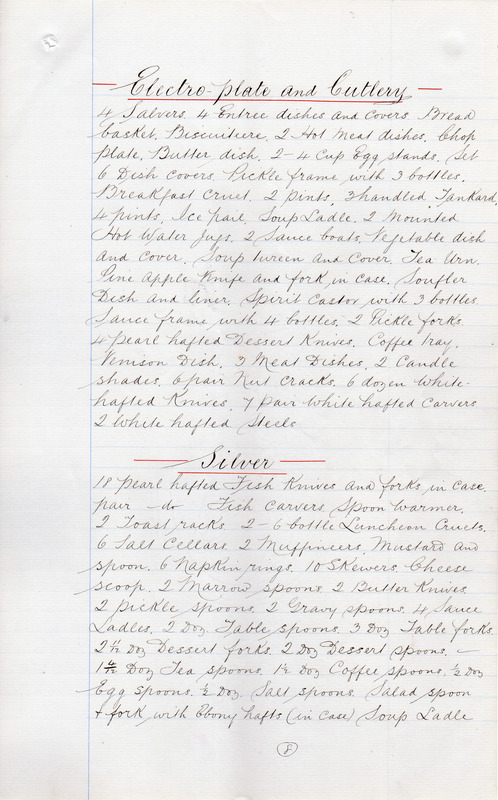 Electro-plate and Cutlery
4 Salvers. 4 Entree dishes and covers. Bread
basket. Biscuitiere. 2 Hot Meat dishes. Chop
plate. Butter dish. 2-4 Cup Egg stands. Set
6 Dish covers. Pickle frame with 3 bottles.
Breakfast cruet. 2 pints. 3 handled Tankard,
4 pints. Ice pail. Soup Ladle. 2 Mounted
Hot Water Jugs. 2 Sauce boats. Vegetable dish
and cover. Soup tureen and cover. Tea Urn.
Pine Apple Knife and fork in case. Soufler
Dish and liner. Spirit Castor with 3 bottles
Sauce frame with 4 bottles. 2 Pickle forks.
4 pearl hafted Dessert Knives. Coffee tray.
Venison Dish. 3 Meat Dishes. 2 Candle
shades. 6 pair Nut cracks. 6 dozen White-
hafted Knives. 7 pair White hafted Carvers
2 White hafted Steels
Silver
18 pearl hafted Fish Knives and forks in case.
pair - do Fish Carvers. Spoon Warmer.
2 Toast racks. 2-6 bottle Luncheon Cruets.
6 Salt Cellars. 2 Muffineers. Mustard and
spoon. 6 Napkin rings. 10 Skewers. Cheese
scoop. 2 Marrow spoons. 2 Butter Knives
2 pickle spoons. 2 Gravy spoons. 4 Sauce
Ladles. 2 Doz. Table spoons. 3 Doz Table forks.
2½ Doz Dessert forks. 2 Doz Dessert spoons. -
Doz Tea spoons. Doz Coffee spoons. ½ Doz
Egg spoons. ½ Doz. Salt spoons. Salad spoon
+ fork with Ebony hafts (in case) Soup Ladle